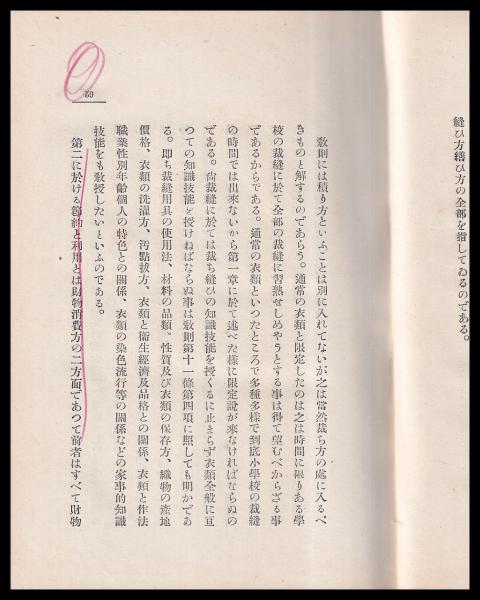 縫ひ方繕ひ方の全部を指してゐるのである。
敎則には積り方といふことは別に入れてないが之は當然裁ち方の處に入るべ
きものと解するのであらう。通常の衣類と限定したのは之は時間に限りある學
校の裁縫に於て全部の裁縫に習熟せしめやうとする事は得て望むべからざる事
であるからである。通常の衣類といつたところで多種多樣で到底小學校の裁縫
の時間では出來ないから第一章に於て述べた樣に限定說が來なければならぬの
である。尙裁縫に於ては裁ち縫ひの知識技能を授くるに止まらず衣類全般に亘
つての知識技能を授けねばならぬ事は敎則第十一條第四項に照しても明かであ
る。卽ち裁縫用具の使用法、材料の品類、性質及び衣類の保存方、織物の產地
價格、衣類の洗濯方、汚點拔方、衣類と衞生經濟及品格との關係、衣類と作法
職業性別年齡個人の特色との關係、衣類の染色流行等の關係などの家事的知識
技能をも敎授したいといふのである。
第二に於ける節約と利用とは財物消費方の二方面であつて前者はすべて財物